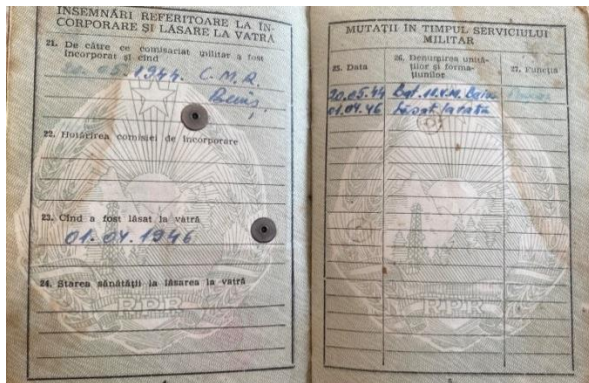 INSEMNĂRI REFERITOARE LA ÎN-
CORPORARE ȘI LĂSARE LA VATRĂ
21. De către ce comisariat militar a fost
încorporat și cînd
20.05.1944. C.M.R.
22. Hotărîrea comisiei de încorporare
23. Cînd a fost lăsat la vatră
01.04.1946
24. Starea sănătății la lăsarea la vatră
R.P.R
MUTAȚII ÎN TIMPUL SERVICIULUI
MILITAR
25. Data
26. Denumirea unită-
ților și forma-
țiunilor
27. Funcția
20.05.44
01.04.46 Lăsat la vatră
R.P.R